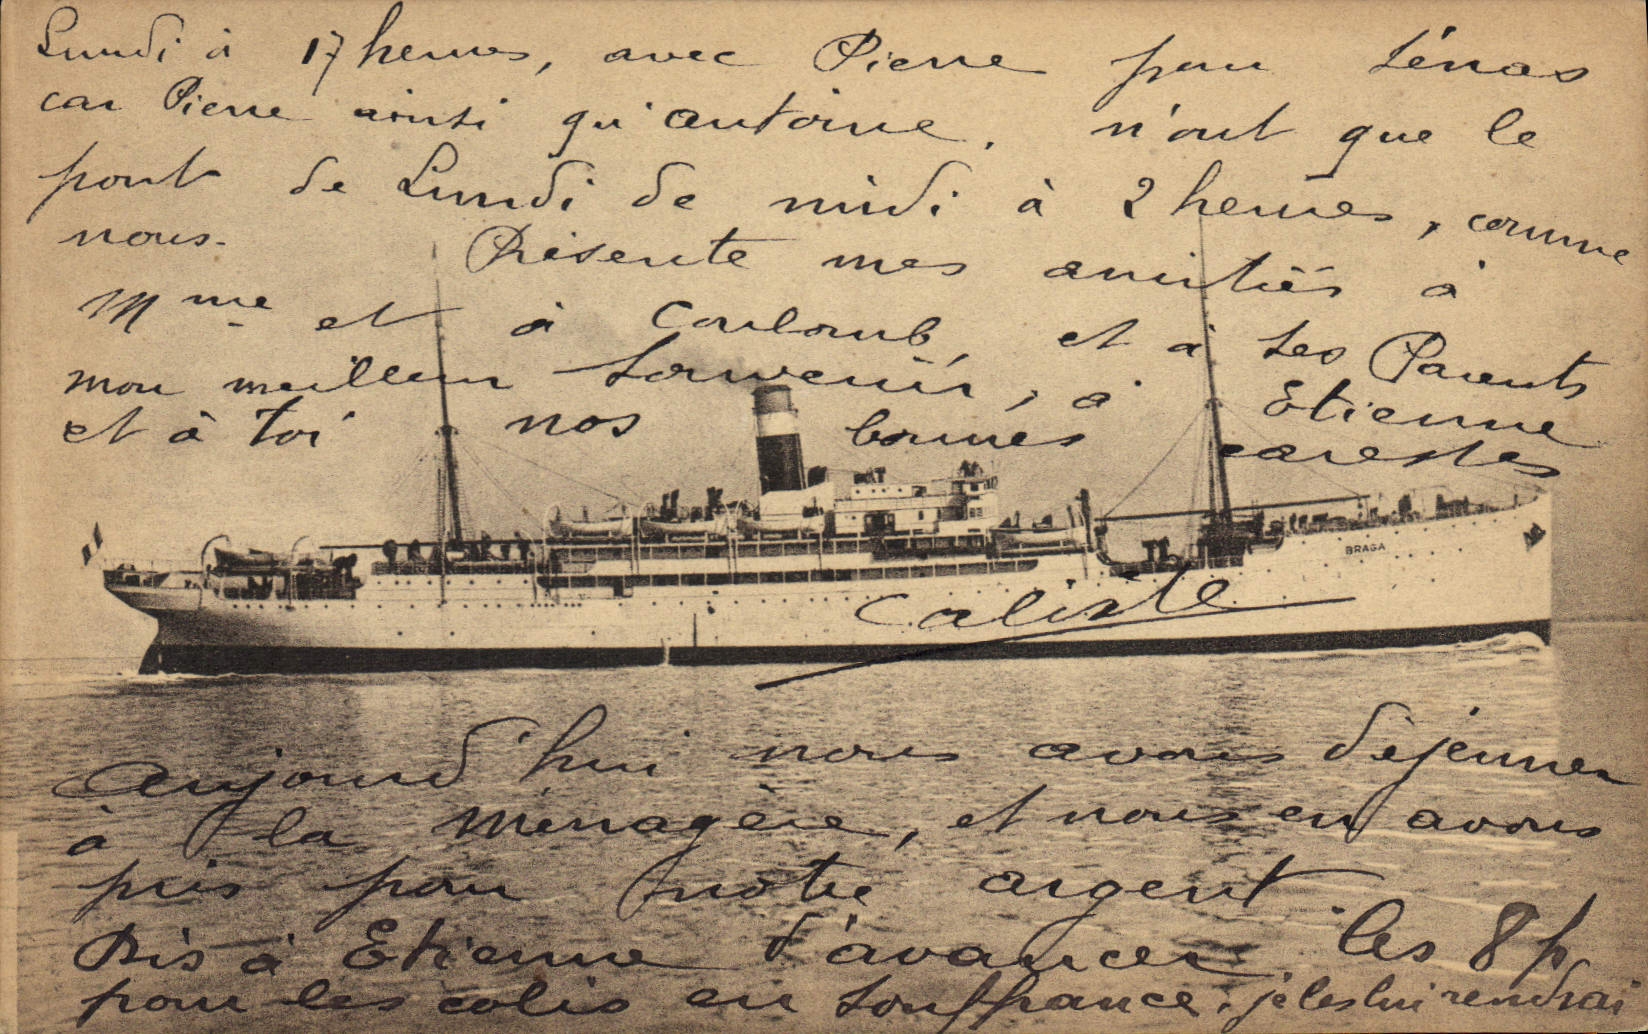 Lundi à 17 heures, avec Pierre pour Sénas
car Pierre ainsi qu'antoine, n'ont que le
pont de Lundi de midi à 2 heures, comme
nous. Présente mes amitiés à
Mme et à Coulomb, et à ses Parents
mon meilleur souvenir, à Etienne
et à toi nos bonnes caresses
BRAGA
Caliste
aujourd'hui nous avons déjeuner
à la Ménagère, et nous en avons
pris pour notre argent.
Dis à Etienne d'avancer les 8 f
pour les colis en souffrance, je les lui rendrai